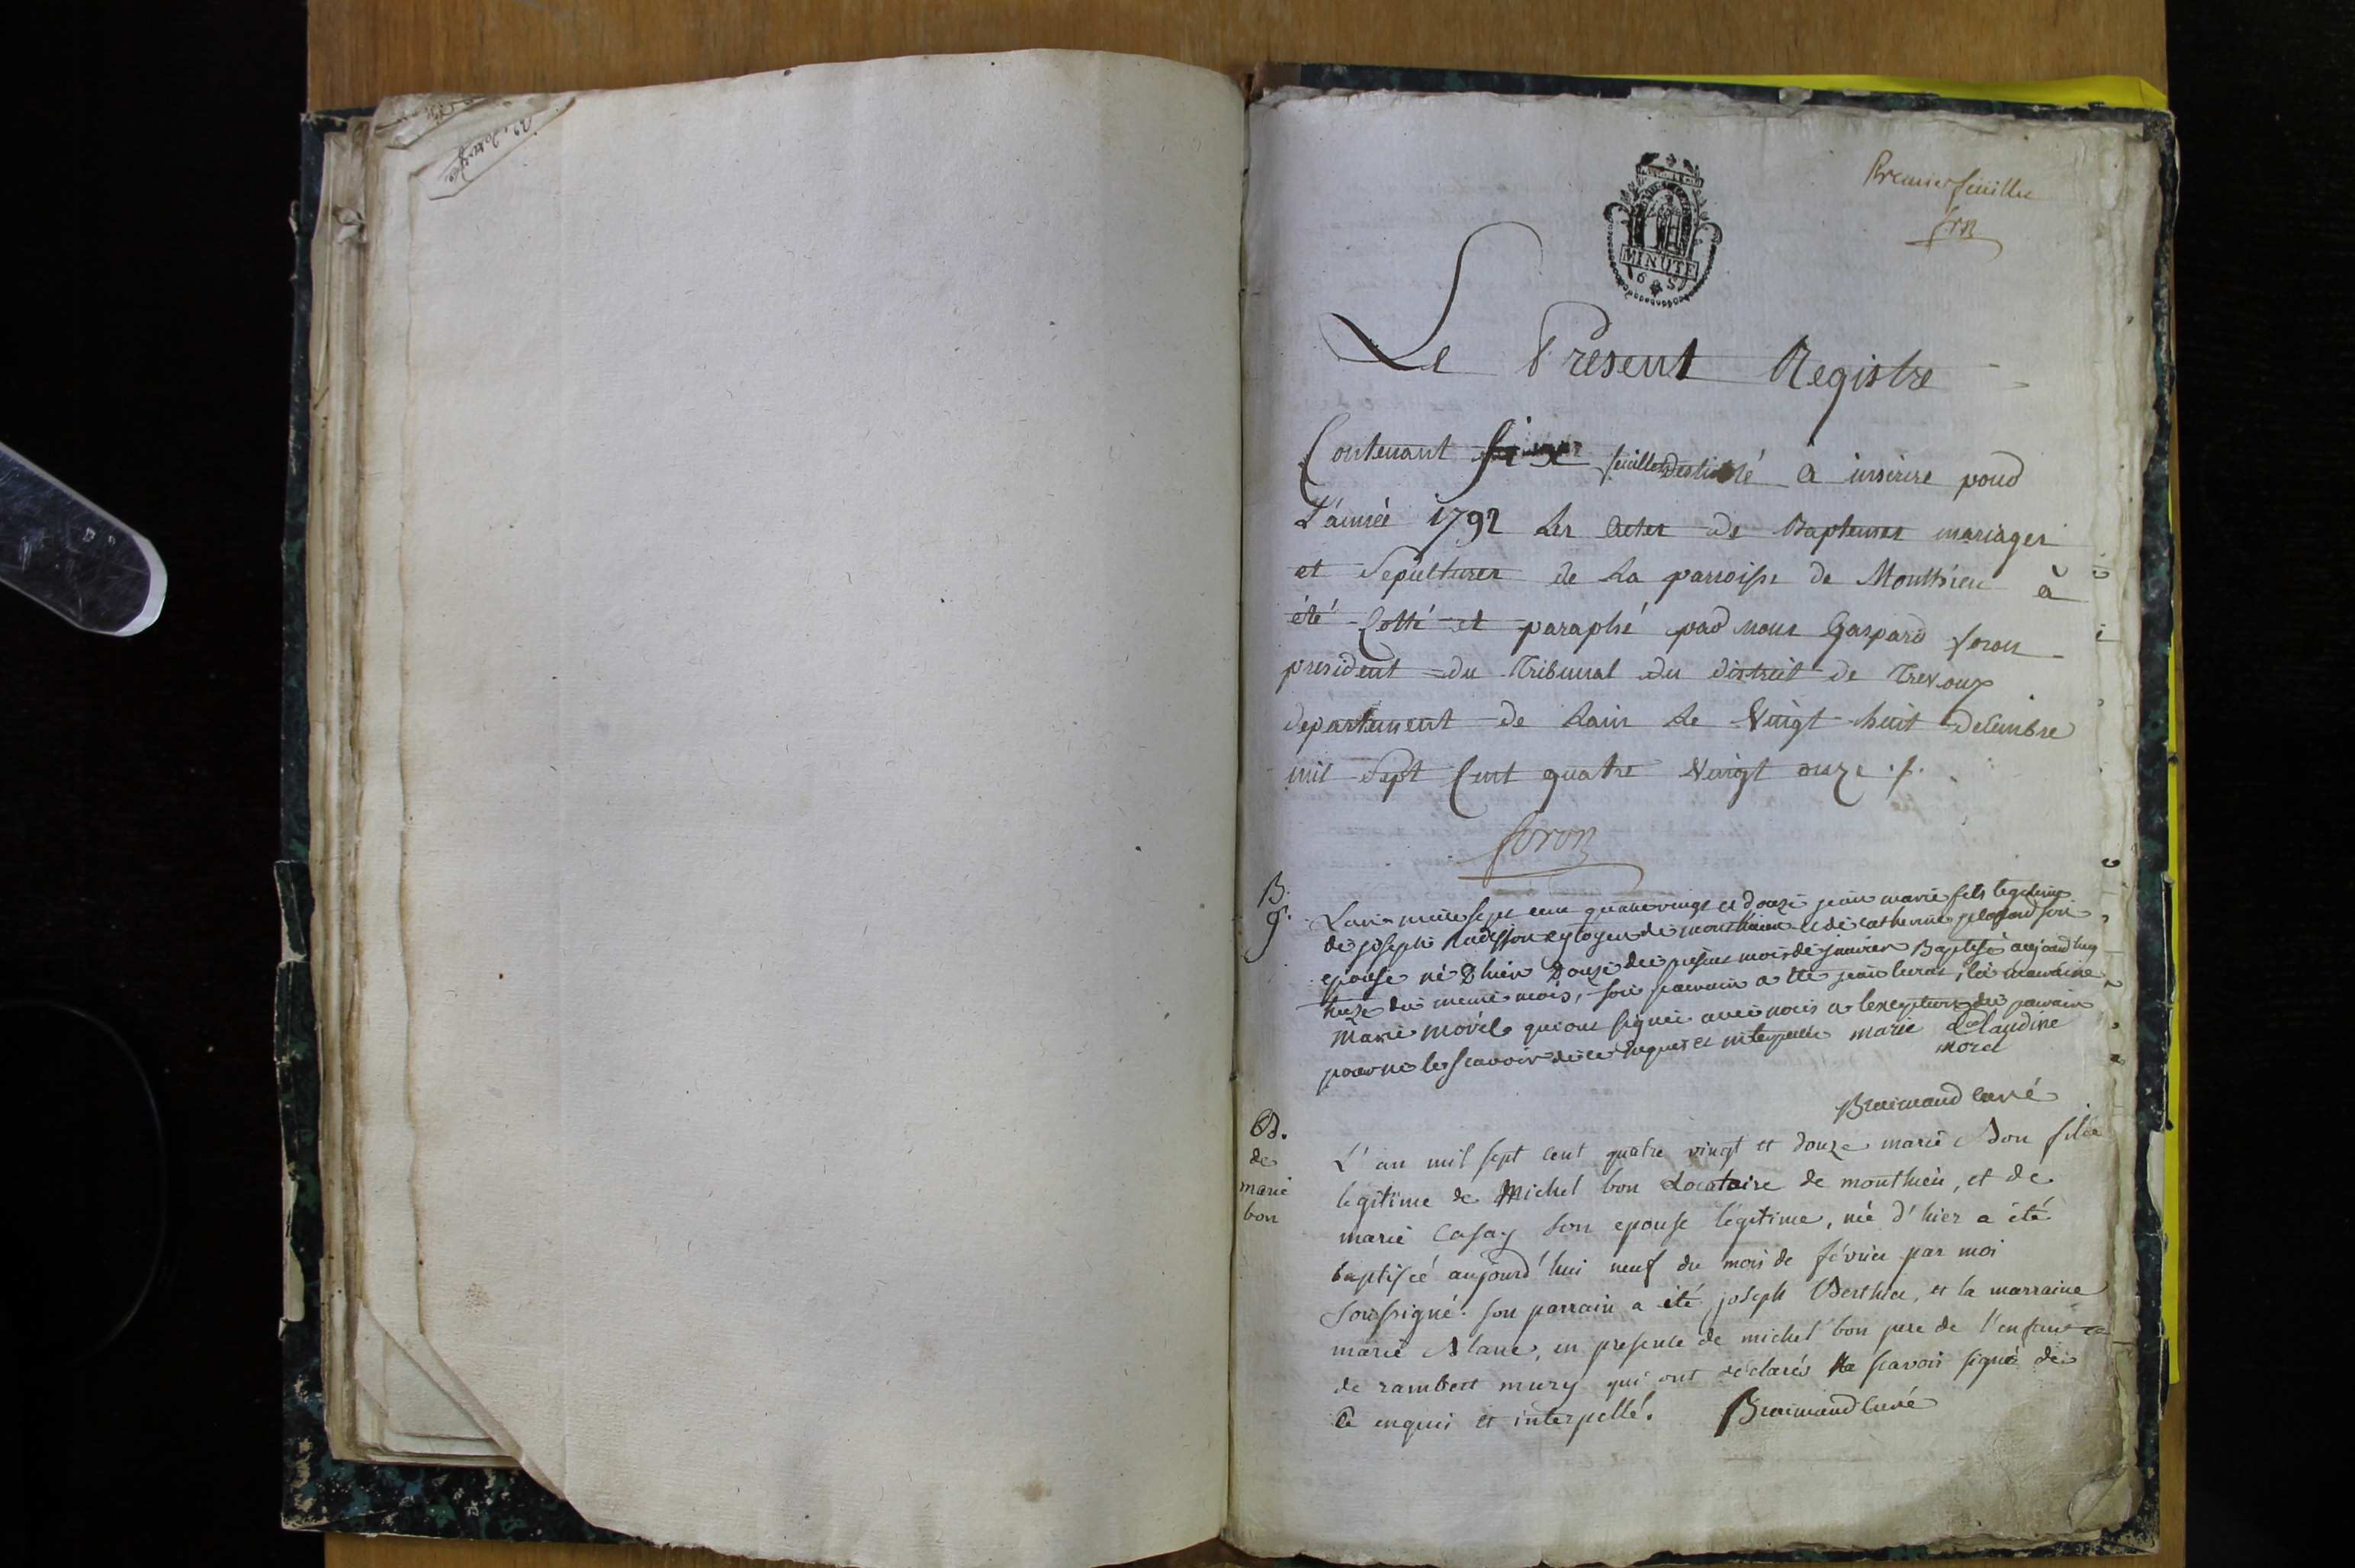 Premier feuillet
frn
MINUTE
6 S
Le Présent Registre
Contenant feuillets destiné à inscrire pour
L'année 1792 Les Actes de Baptemes mariages
et Sepultures de La parroisse de Monthieu à
été Cotté et paraphé par nous Gaspard foron
president du Tribunal du district de Trevoux
departement de Lain Le Vingt huit decembre
mil Sept Cent quatre Vingt onze ./.
foron
B.
g.
Lan mille sept cent quatrevingt et douze jean marie fils legitime
de joseph cytoyen de monthieu et de catherine son
epouse né D'hier Douze du present mois de janvier Baptisé aujourdhuy
treize du meme mois, son parrain a été jean, la marraine
Marie morel qui ont signés avec nous a lexception du parrain
pour ne le scavoir de ce enquis et interpellé marie Claudine
morel
Braimaud curé
B.
de
marie
bon
L'an mil sept cent quatre vingt et douze marie Bon fille
legitime de Michel bon Locataire de monthieu, et de
marie Casay son epouse légitime, née d'hier a été
baptisée aujourd'hui neuf du mois de février par moi
soussigné. son parrain a été joseph Berthier, et la marraine
marie Blanc, en presence de michel bon pere de l'enfant et
de rambert mury qui ont déclarés ne scavoir signé de
ce enquis et interpellé. Braimaud curé